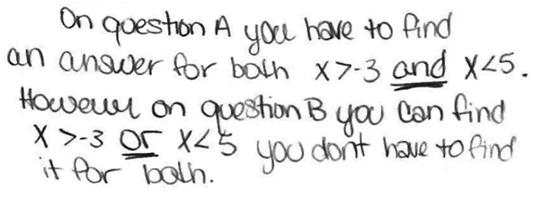 On question A you have to find
an answer for both x>-3 and x<5.
However on question B you can find
x>-3 or x<5 you dont have to find
it for both.